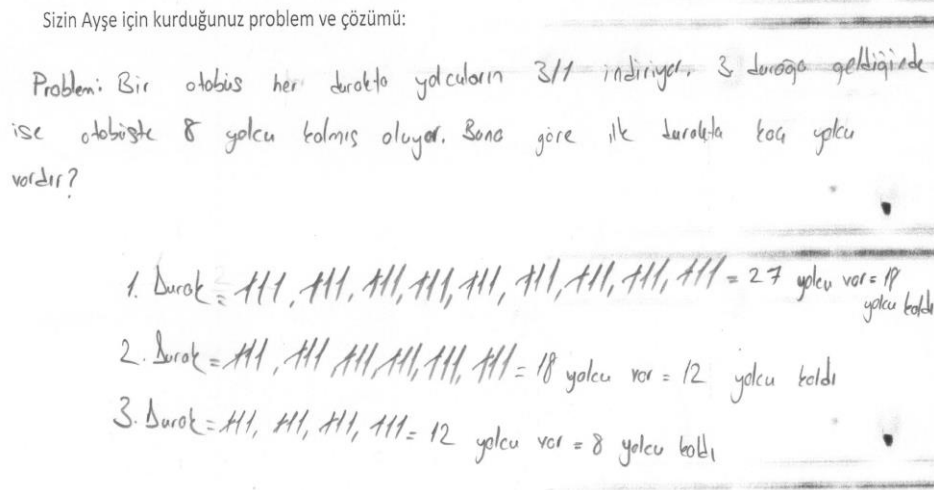 Sizin Ayşe için kurduğunuz problem ve çözümü:
Problem: Bir otobüs her durakta yolcuların 3/1 indiriyor. 3 durağa geldiğinde
ise otobüste 8 yolcu kalmış oluyor. Buna göre ilk durakta kaç yolcu
vardır?
1. Durak = 111, 111, 111, 111, 111, 111, 111, 111, 111 = 27 yolcu var = 18
yolcu kaldı
2. Durak = 111, 111 111, 111, 111, 111 = 18 yolcu var = 12 yolcu kaldı
3. Durak = 111, 111, 111, 111 = 12 yolcu var = 8 yolcu kaldı